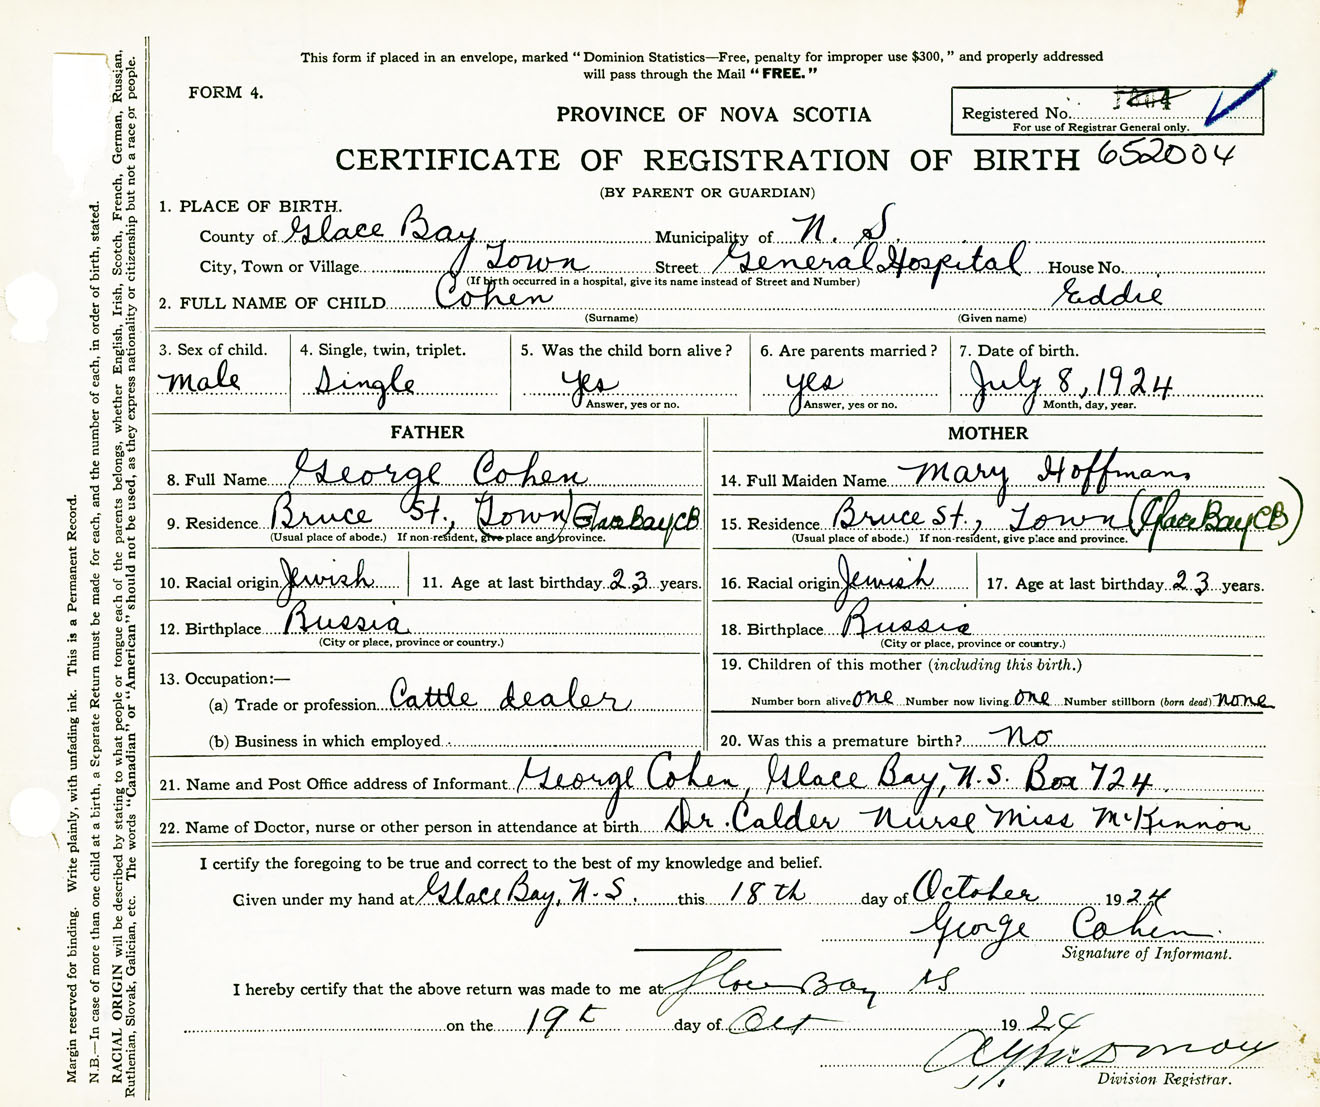 This form if placed in an envelope, marked “Dominion Statistics—Free, penalty for improper use $300,” and properly addressed
will pass through the Mail “FREE.”
FORM 4.
Registered No.
For use of Registrar General only.
PROVINCE OF NOVA SCOTIA
CERTIFICATE OF REGISTRATION OF BIRTH 652004
(BY PARENT OR GUARDIAN)
1. PLACE OF BIRTH.
County of Glace Bay Municipality of N. S.
City, Town or Village Town Street General Hospital House No.
(If birth occurred in a hospital, give its name instead of Street and Number)
2. FULL NAME OF CHILD Cohen Eddie
(Surname) (Given name)
3. Sex of child. 4. Single, twin, triplet. 5. Was the child born alive? 6. Are parents married? 7. Date of birth.
male Single yes yes July 8, 1924
Answer, yes or no. Answer, yes or no. Month, day, year.
FATHER MOTHER
8. Full Name George Cohen 14. Full Maiden Name Mary Hoffman
9. Residence Bruce St., (Town) Glace Bay CB 15. Residence Bruce St., Town (Glace Bay CB)
(Usual place of abode.) If non-resident, give place and province. (Usual place of abode.) If non-resident, give place and province.
10. Racial origin Jewish 11. Age at last birthday 23 years. 16. Racial origin Jewish 17. Age at last birthday 23 years.
12. Birthplace Russia 18. Birthplace Russia
(City or place, province or country.) (City or place, province or country.)
13. Occupation:— 19. Children of this mother (including this birth.)
(a) Trade or profession Cattle dealer Number born alive one Number now living one Number stillborn (born dead) none
(b) Business in which employed 20. Was this a premature birth? No
21. Name and Post Office address of Informant George Cohen, Glace Bay, N.S. Box 724.
22. Name of Doctor, nurse or other person in attendance at birth Dr. Calder Nurse Miss McKinnon
I certify the foregoing to be true and correct to the best of my knowledge and belief.
Given under my hand at Glace Bay, N.S. this 18th day of October 1924
George Cohen.
Signature of Informant.
I hereby certify that the above return was made to me at Glace Bay NS
on the 19th day of Oct 1924
Division Registrar.
Margin reserved for binding. Write plainly, with unfading ink. This is a Permanent Record.
N.B.—In case of more than one child at a birth, a Separate Return must be made for each, and the number of each, in order of birth, stated.
RACIAL ORIGIN will be described by stating to what people or tongue each of the parents belongs, whether English, Irish, Scotch, French, German, Russian,
Ruthenian, Slovak, Galician, etc. The words “Canadian” or “American” should not be used, as they express nationality or citizenship but not a race or people.